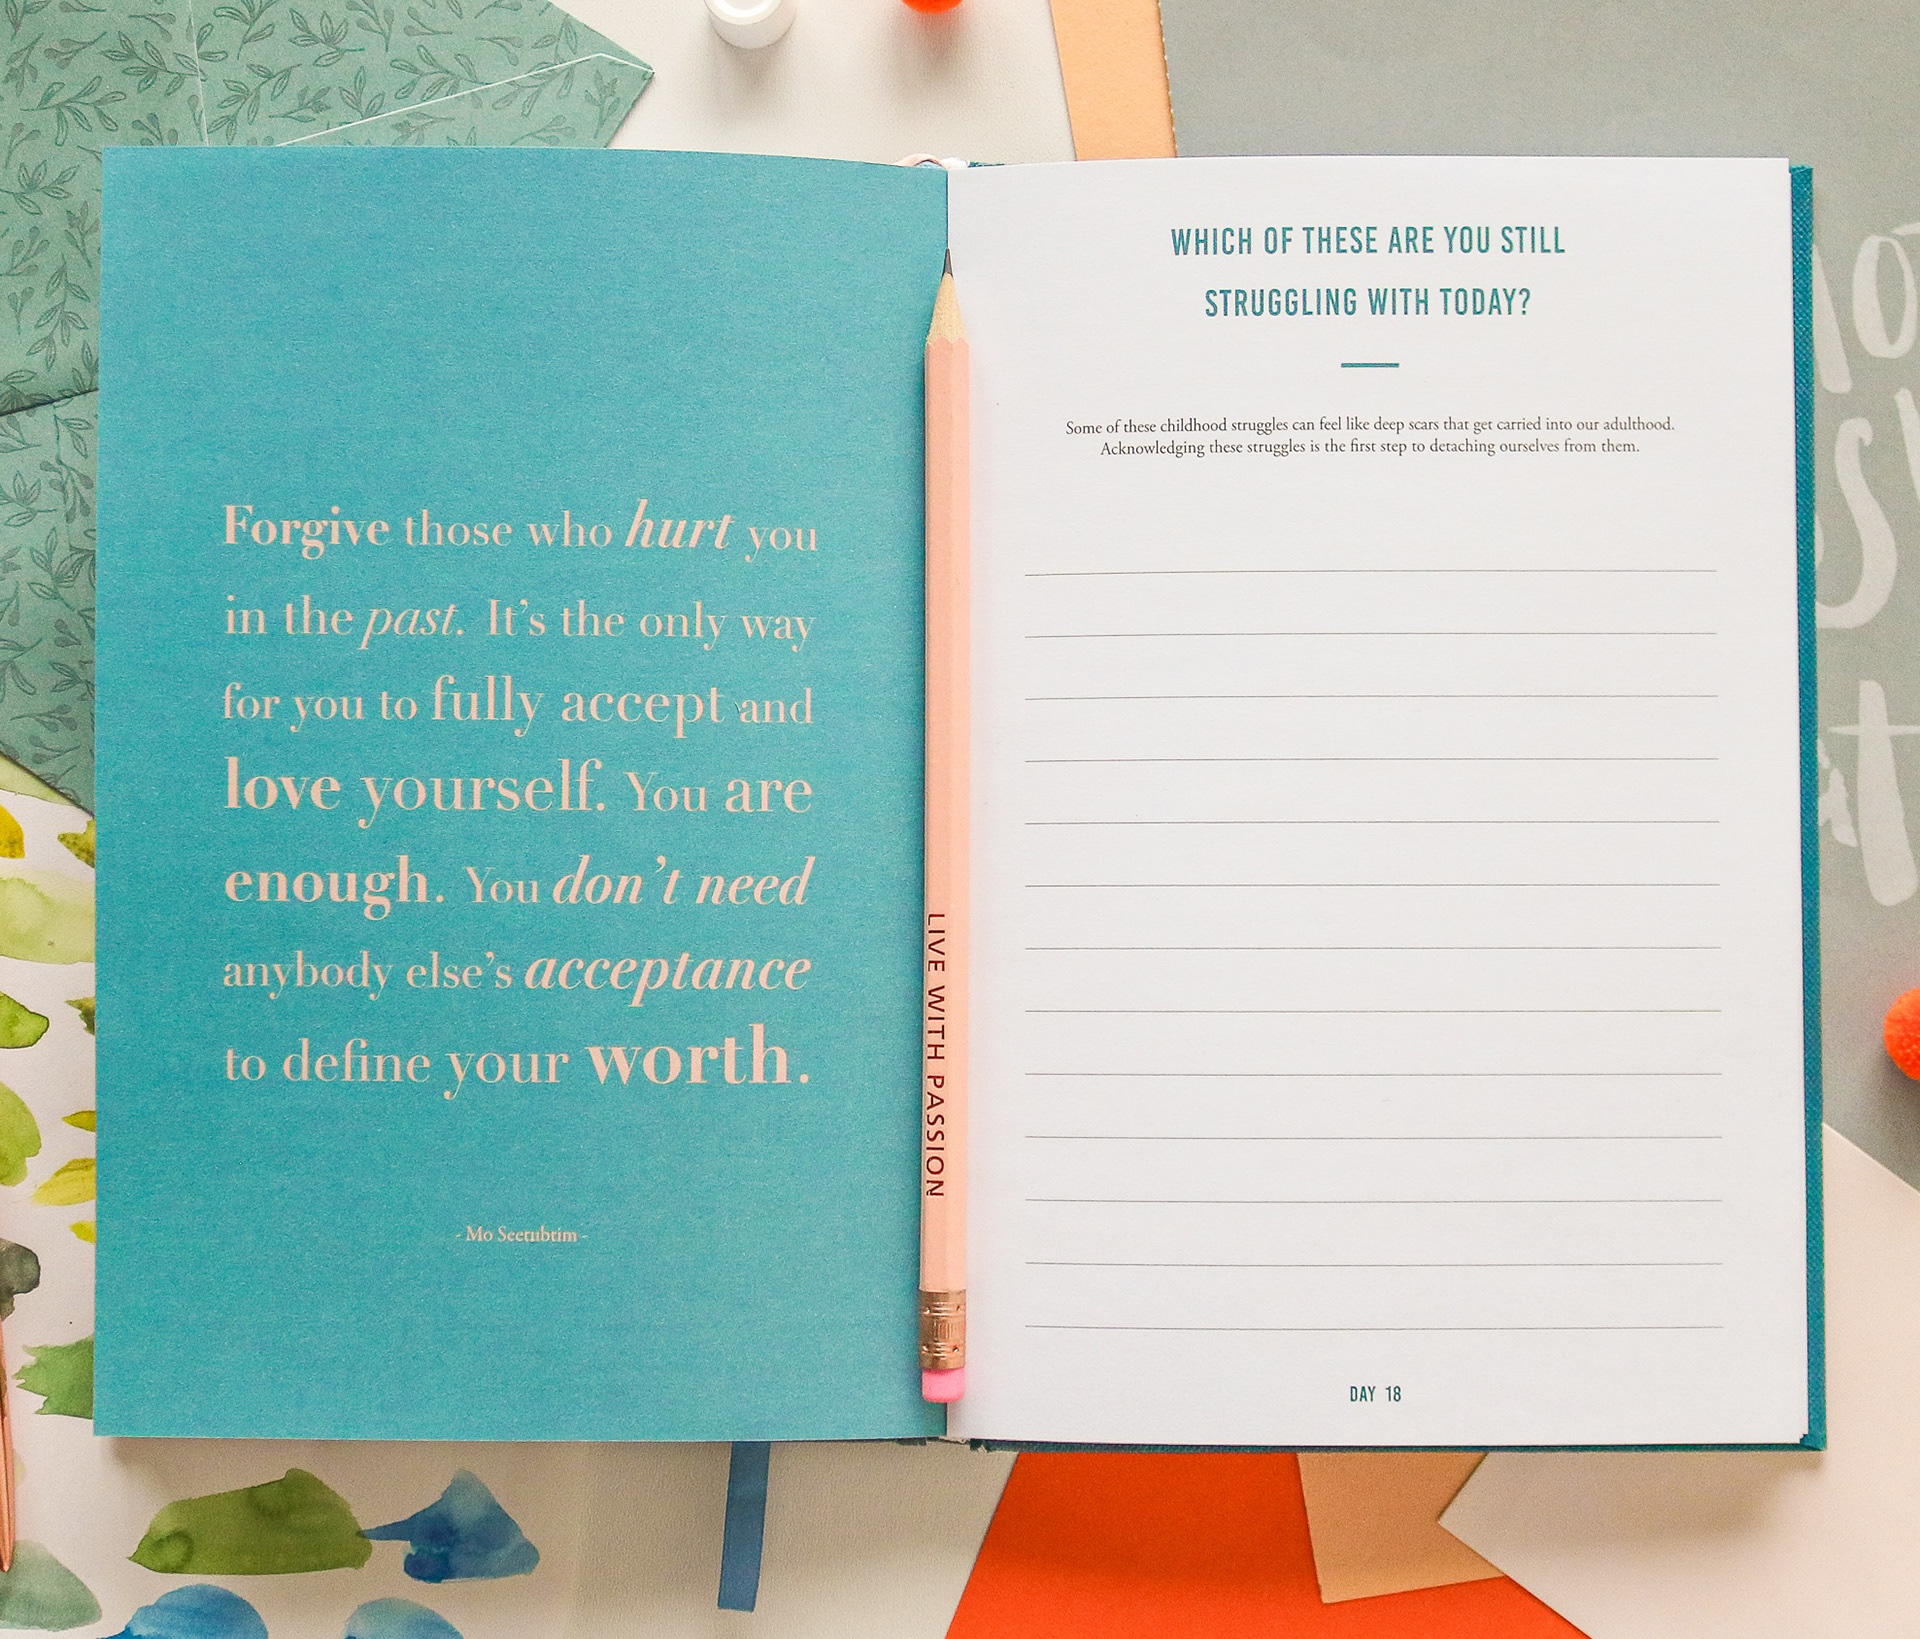 Forgive those who hurt you
in the past. It's the only way
for you to fully accept and
love yourself. You are
enough. You don't need
anybody else's acceptance
to define your worth.
- Mo Seetubtim -
LIVE WITH PASSION
WHICH OF THESE ARE YOU STILL
STRUGGLING WITH TODAY?
Some of these childhood struggles can feel like deep scars that get carried into our adulthood.
Acknowledging these struggles is the first step to detaching ourselves from them.
DAY 18